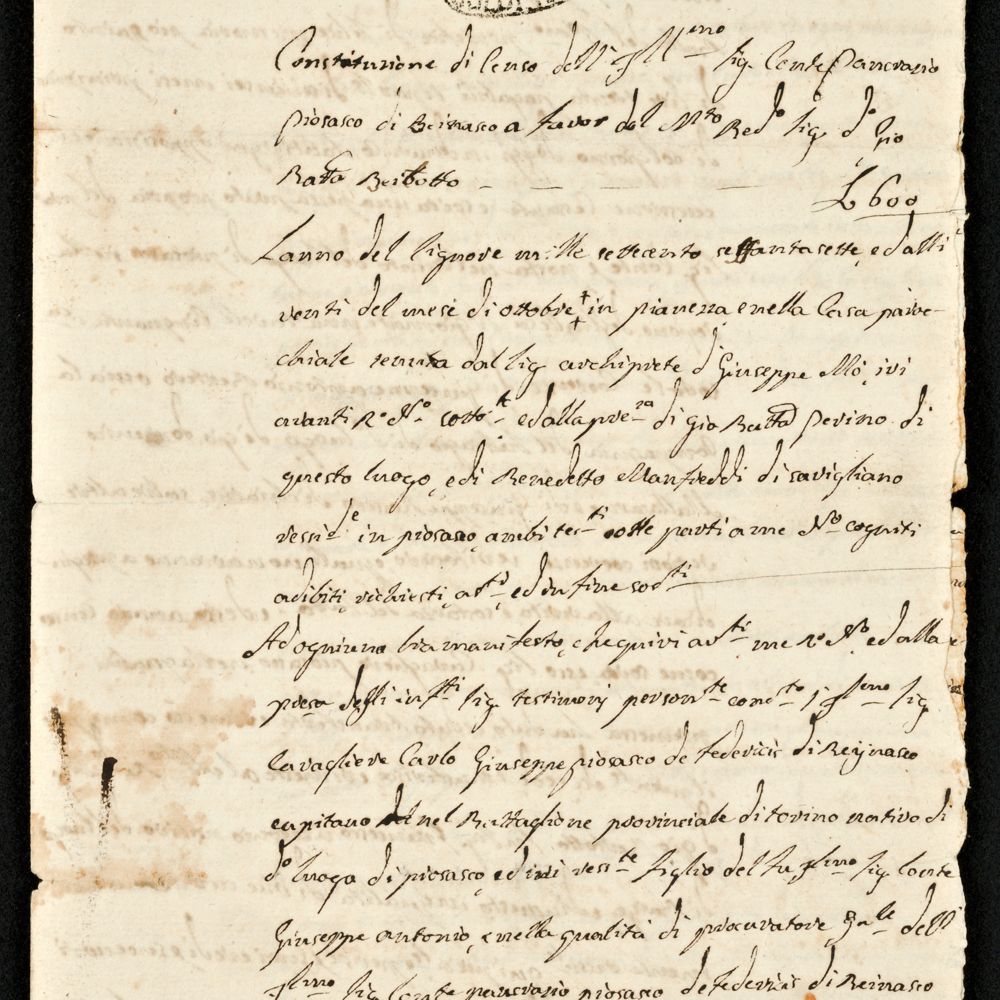 Constituzione di Censo dell' Ill.mo Sig. Conte Pancrazio
Piosasco di Beinasco a favor del M.to Red.o Sig. d.o Gio
Batta Beibotto L 600
Lanno del Signore mille settecento settanta sette, ed alli
venti del mese di ottobre in pianezza, e nella Casa parro-
chiale tenuta dal Sig. archiprete d Giuseppe Mò, ivi
avanti R.o N.o sott.o ed alla pre.za di Gio Batta Perino di
questo luogo, e di Benedetto Manfreddi di Savigliano
ressid.e in piosasco, ambi tes.ti e colle parti a me N.o cogniti
adibiti, richiesti, as.ti, ed infine sos.ti
Ad ogniuno sia manifesto, che quivi av.ti me R.o N.o ed alla
presa delli inf.tti Sig. testimonj person.te const.to l'Ill.mo Sig.
Cavagliere Carlo Giuseppe piosasco de federicis di Beynasco
capitano nel Battaglione provinciale di torino nativo di
d.o luogo di piosasco, ed ivi ress.te figlio del fu Ill.mo Sig. Conte
Giuseppe antonio, e nella qualità di procuratore G.ale dell'
Ill.mo Sig. Conte pancrazio piosasco de federicis di Beinasco